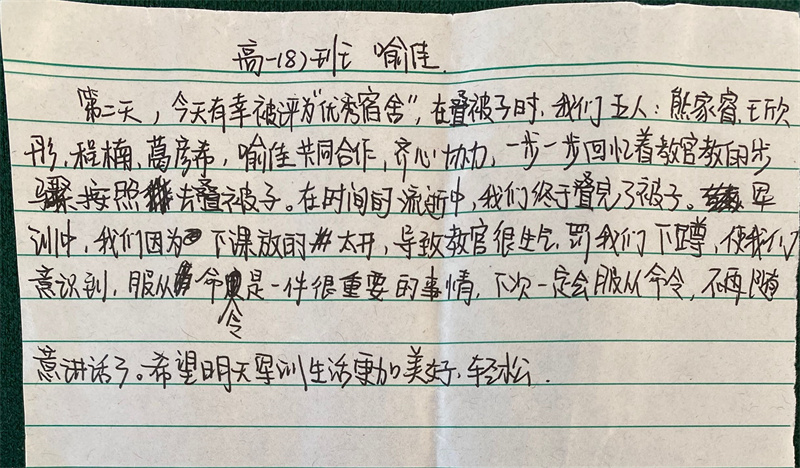 高一(8)班 喻佳
第二天，今天有幸被评为"优秀宿舍"，在叠被子时，我们五人：熊家睿、王欣
彤、程楠、葛彦希，喻佳共同合作，齐心协力，一步一步回忆着教官教的步
骤按照去叠被子。在时间的流逝中，我们终于叠完了被子。军
训中，我们因为下课放的太开，导致教官很生气，罚我们下蹲，使我们
意识到，服从命令是一件很重要的事情，下次一定会服从命令，不再随
意讲话了。希望明天军训生活更加美好、轻松．